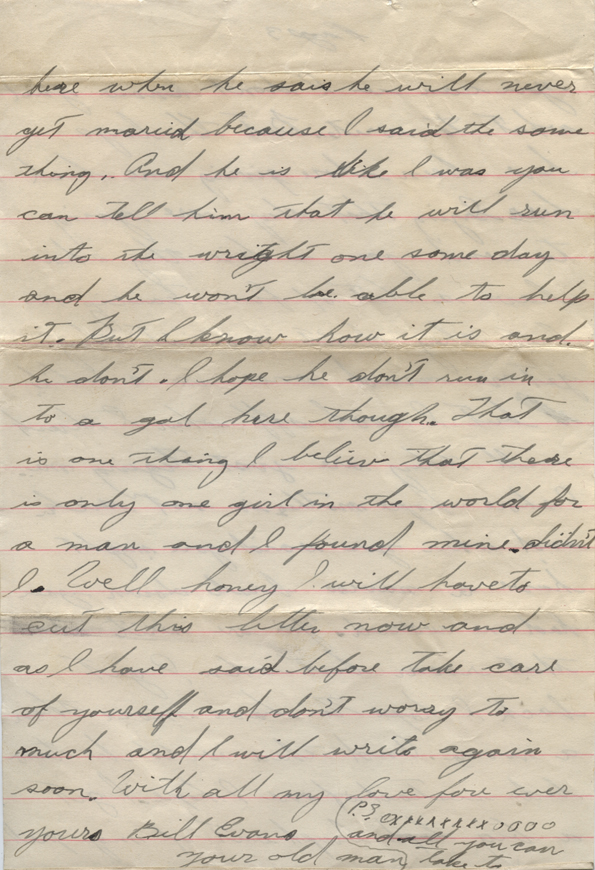 here when he sais he will never
get mariid because I said the same
thing. And he is like I was you
can tell him that he will run
into the wright one some day
and he won't be able to help
it. But I know how it is and
he don't. I hope he don't run in
to a gal here though. That
is one thing I believe that there
is only one girl in the world for
a man and I found mine. didn't
I. Well honey I will have to
cut this letter now and
as I have said before take care
of yourself and don't worry to
much and I will write again
soon. With all my love fore ever
yours Bill Evans
your old man,
P.S. OXXXXXXXX OOOO
and all you can
take to